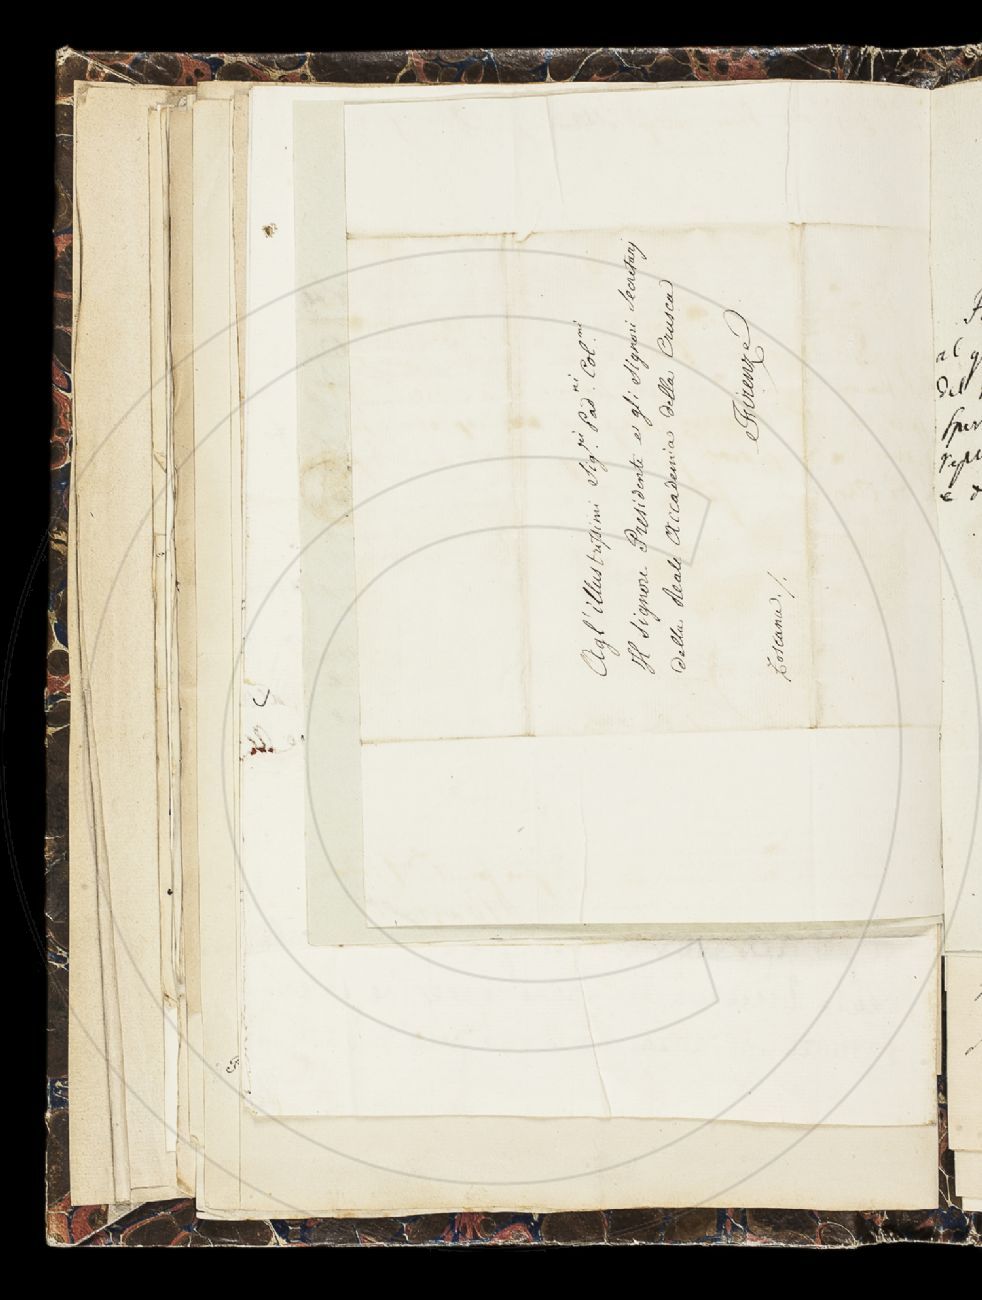 Agl'illustrissimi Sig.ri Pad.ni Col.mi
Il Signore Presidente e gli Signori Secretarj
della Reale Accademia della Crusca
Firenze
Toscana ./.
al
del